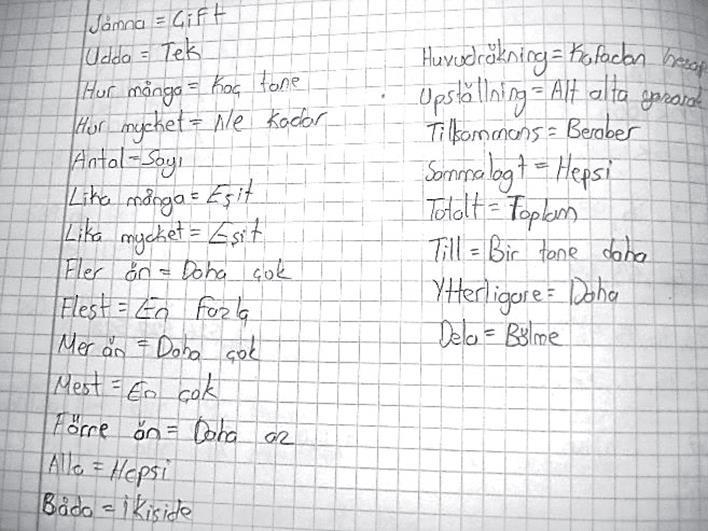 Jämna = Çift
Udda = Tek
Hur många = Kaç tane
Hur mycket = Ne kadar
Antal = Sayı
Lika många = Eşit
Lika mycket = Eşit
Fler än = Daha çok
Flest = En fazla
Mer än = Daha çok
Mest = En çok
Färre än = Daha az
Alla = Hepsi
Båda = ikiside
Huvudräkning = Kafadan hesap
Upställning = Alt alta yazarak
Tillsammans = Beraber
Sammalagt = Hepsi
Totalt = Toplam
Till = Bir tane daha
Ytterligare = Daha
Dela = Bölme